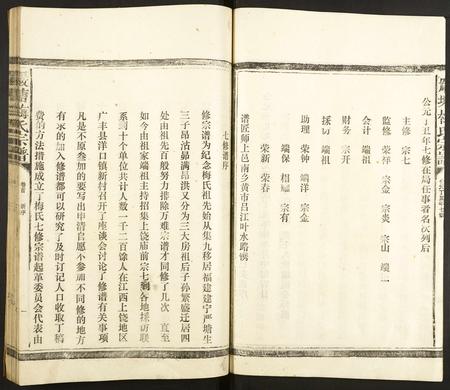 公元丁丑年七修在局任事者名次列后
主修 宗七
监修 荣祥 宗金 宗炎 宗山 端二
会计 端祖
财务 宗开
採访 端祖
助理 荣钟 端洋 宗金
端保 相 宗有
荣新 荣春
谱匠师上邑南乡黄市吕江叶水路誘
七修谱序
修宗谱为纪念梅氏祖先始从集九移居福建建宁严塘生
三子昂沽昴满昂洪又分为三大房祖后子孙繁盛迁居四
处由祖先百般努力排除万难宗谱才同修了几次 直至
如今由祖家端祖主持招集上饶庙前宗七到各地採访联
系到十个单位共计人数一千二百馀人在江西上饶地区
广丰县洋口镇新村召开了座谈会讨论了修谱有关事项
凡是不原叁加的要写出申清自愿小参加不同修的地方
有求的加入修谱都可以研究了及时订记人口收取丁稿
费的方法措施成立了梅氏七修宗谱起革委员会代表由
卷首 新序